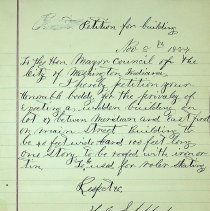 Petition for building
Nov 8th 1884
To the Hon. Mayor Council of the
City of Washington Indiana
I herely petition your
Honorable boddy for the privaleg of
Erecting a building on
lot between Meridian and East
on main Street Building to
be 40 feet wide and 100 feet long
one Story to be roofed with iron or
tin To used for roler Skating
Respt